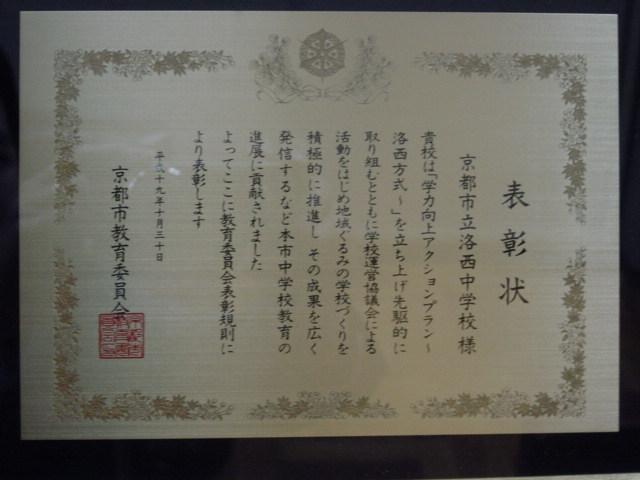 表彰状
京都市立洛西中学校様
貴校は「学力向上アクションプラン～
洛西方式～」を立ち上げ先駆的に
取り組むとともに学校運営協議会による
活動をはじめ地域ぐるみの学校づくりを
積極的に推進し その成果を広く
発信するなど本市中学校教育の
進展に貢献されました
よってここに教育委員会表彰規則に
より表彰します
平成十九年十月三十日
京都市教育委員会